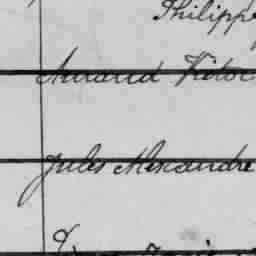 Philippe
Amand Victor
Jules Alexandre